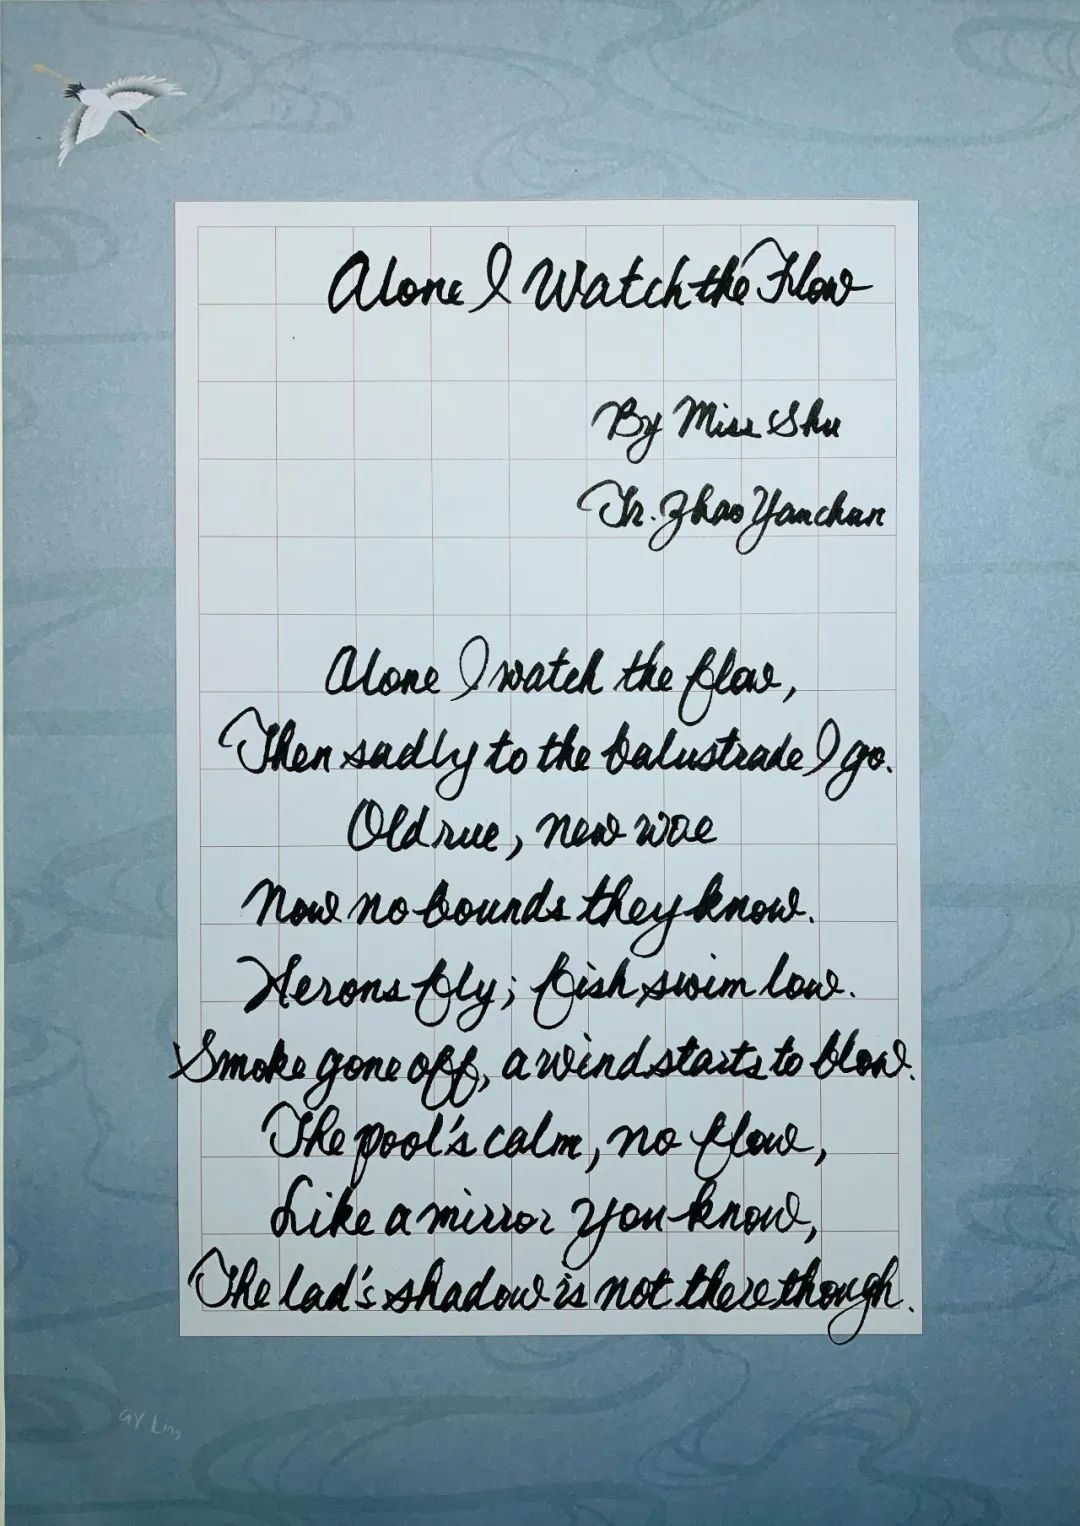 Alone I Watch the Flow
By Miss Shu
Tr. Zhao Yanchun
Alone I watch the flow,
Then sadly to the balustrade I go.
Old rue, new woe
Now no bounds they know.
Herons fly; fish swim low.
Smoke gone off, a wind starts to blow.
The pool's calm, no flow,
Like a mirror you know,
The lad's shadow is not there though.
GY Ling